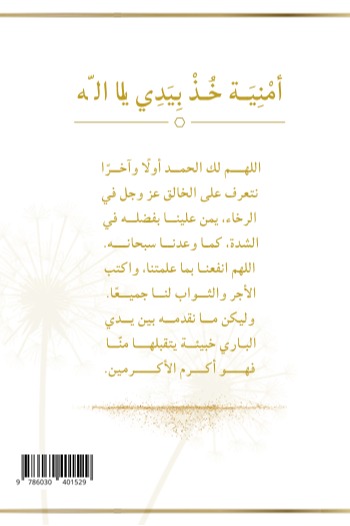 أمْنِيَة خُذْ بِيَدِي يا اللّه
اللهم لك الحمد أولًا وآخرًا
نتعرف على الخالق عز وجل في
الرخاء، يمن علينا بفضله في
الشدة، كما وعدنا سبحانه.
اللهم انفعنا بما علمتنا، واكتب
الأجر والثواب لنا جميعًا.
وليكن ما نقدمه بين يدي
الباري خبيئة يتقبلها منّا
فهو أكرم الأكرمين.
9 786030 401529